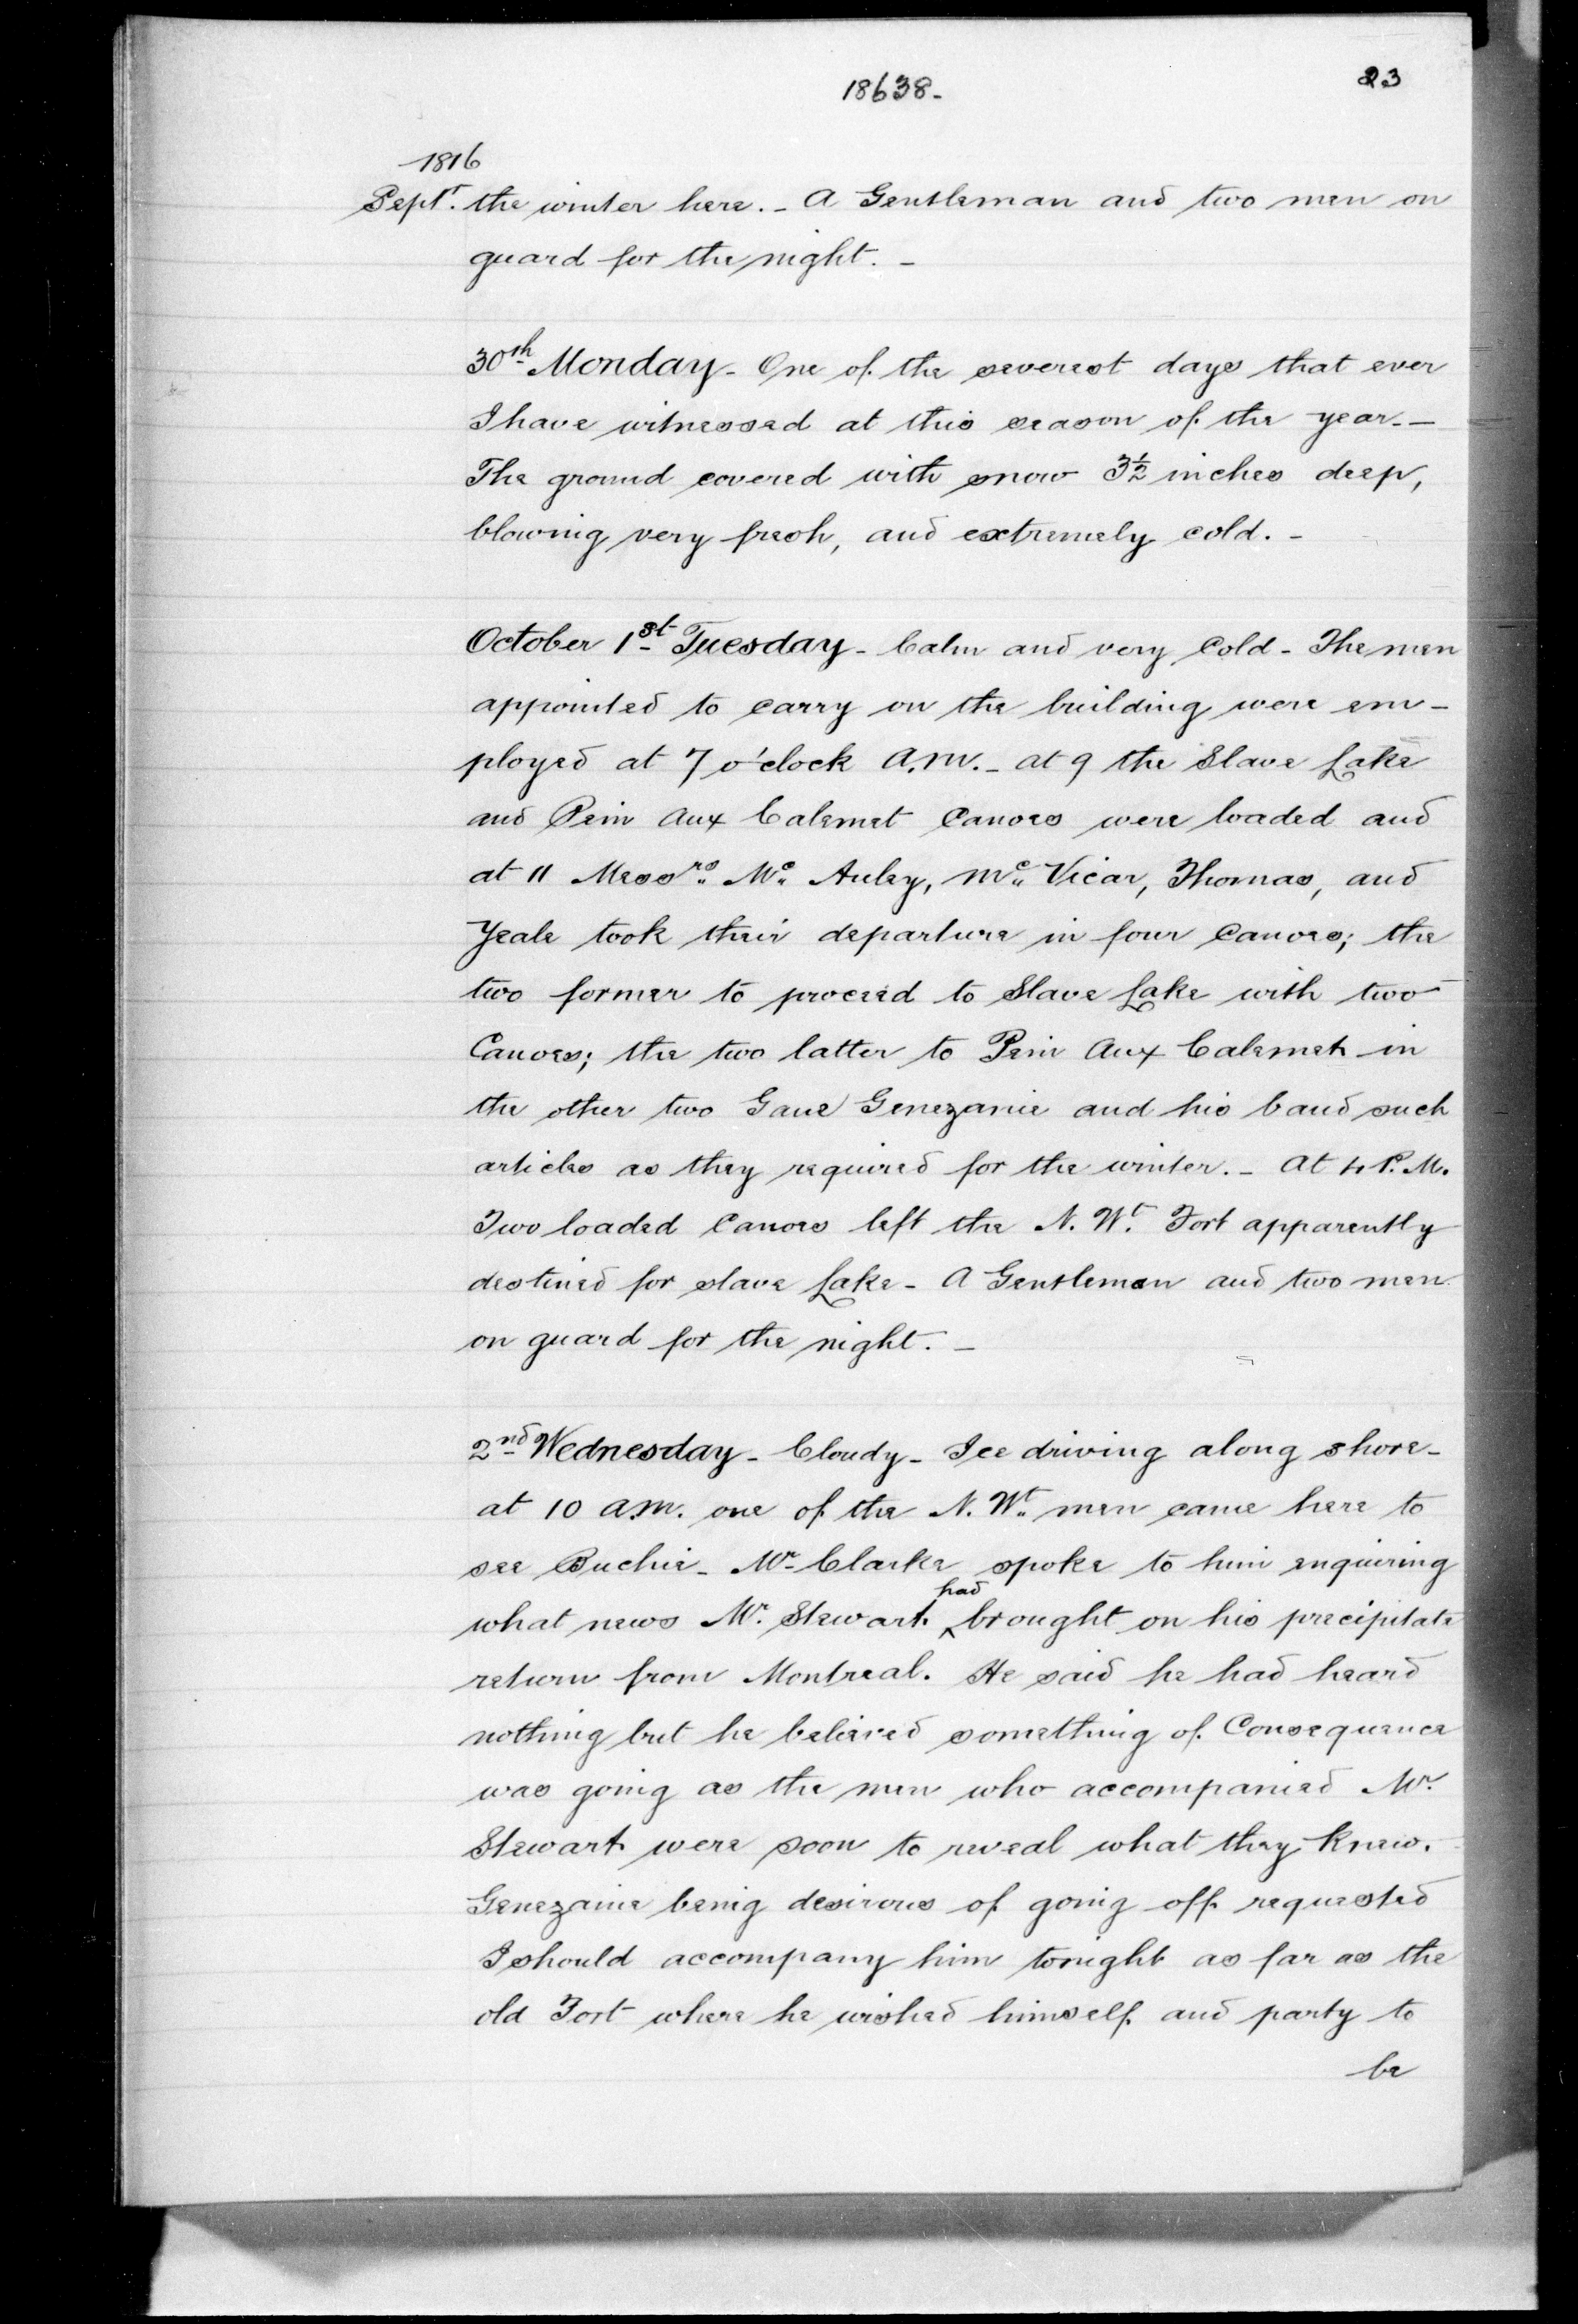 18638-
23
1816
Septr. the winter here. - A Gentleman and two men on
guard for the night. -
30th Monday - One of the severest days that ever
I have witnessed at this season of the year. -
The ground covered with snow 3½ inches deep,
blowing very fresh, and extremely cold. -
October 1st Tuesday - Calm and very Cold - The men
appointed to carry on the building were em-
ployed at 7 o'clock A.M. - at 9 the Slave Lake
and Pein Aux Calemet Canoes were loaded and
at 11 Messrs. Mc. Auley, Mc. Vicar, Thomas, and
Yeale took their departure in four Canoes; the
two former to proceed to Slave Lake with two
Canoes; the two latter to Pein Aux Calemet in
the other two Gave Genezanie and his band such
articles as they required for the winter. - At 4 P.M.
Two loaded Canoes left the N. Wt. Fort apparently
destined for slave Lake - A Gentleman and two men
on guard for the night. -
2nd Wednesday - Cloudy - Ice driving along shore -
at 10 a.m. one of the N. Wt. men came here to
see Buchie - Mr. Clarke spoke to him enquiring
what news Mr. Stewart had brought on his precipitate
return from Montreal. He said he had heard
nothing but he believed something of Consequence
was going as the men who accompanied Mr.
Stewart were soon to reveal what they knew.
Genezanie being desirous of going off requested
I should accompany him tonight as far as the
old Fort where he wished himself and party to
be